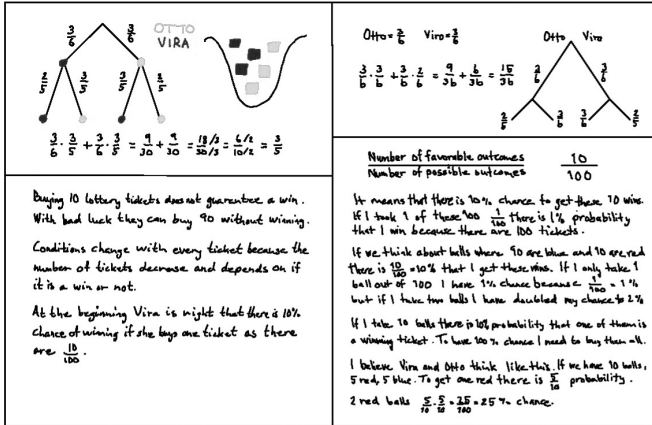 3/6 3/6 OTTO
VIRA
2/5 3/5 3/5 2/5
3/6 · 3/5 + 3/6 · 3/5 = 9/30 + 9/30 = 18/3 / 30/3 = 6/2 / 10/2 = 3/5
Buying 10 lottery tickets does not guarentee a win.
With bad luck they can buy 90 without winning.
Conditions change with every ticket because the
number of tickets decrease and depends on if
it is a win or not.
At the beginning Vira is right that there is 10%
chance of winning if she buys one ticket as there
are 10/100.
Otto = 3/6 Viro = 3/6 Otto Viro
3/6 · 3/6 + 3/6 · 2/6 = 9/36 + 6/36 = 15/36
3/6 3/6
2/6 3/6 3/6 2/5
Number of favorable outcomes 10
Number of possible outcomes 100
It means that there is 10% chance to get these 10 wins.
If I took 1 of these 100 1/100 there is 1% probability
that I win because there are 100 tickets.
If we think about balls where 90 are blue and 10 are red
there is 10/100 = 10% that I get these wins. If I only take 1
ball out of 100 I have 1% chance because 1/100 = 1%
but if I take two balls I have doubled my chance to 2%
If I take 10 balls there is 10% probability that one of them is
a winning ticket. To have 100% chance I need to buy them all.
I believe Vira and Otto think like this. If we have 10 balls,
5 red, 5 blue. To get one red there is 5/10 probability.
2 red balls 5/10 · 5/10 = 25/100 = 25% chance.